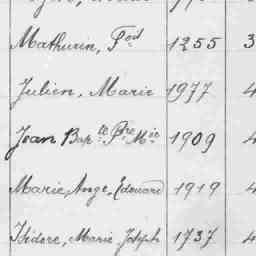 Mathurin, Fois 1355 3
Julien, Marie 1977 4
Jean Bapte Pre Mie 1909 4
Marie, Ange, Edouard 1919 4
Isidore, Marie Joseph 1737 4